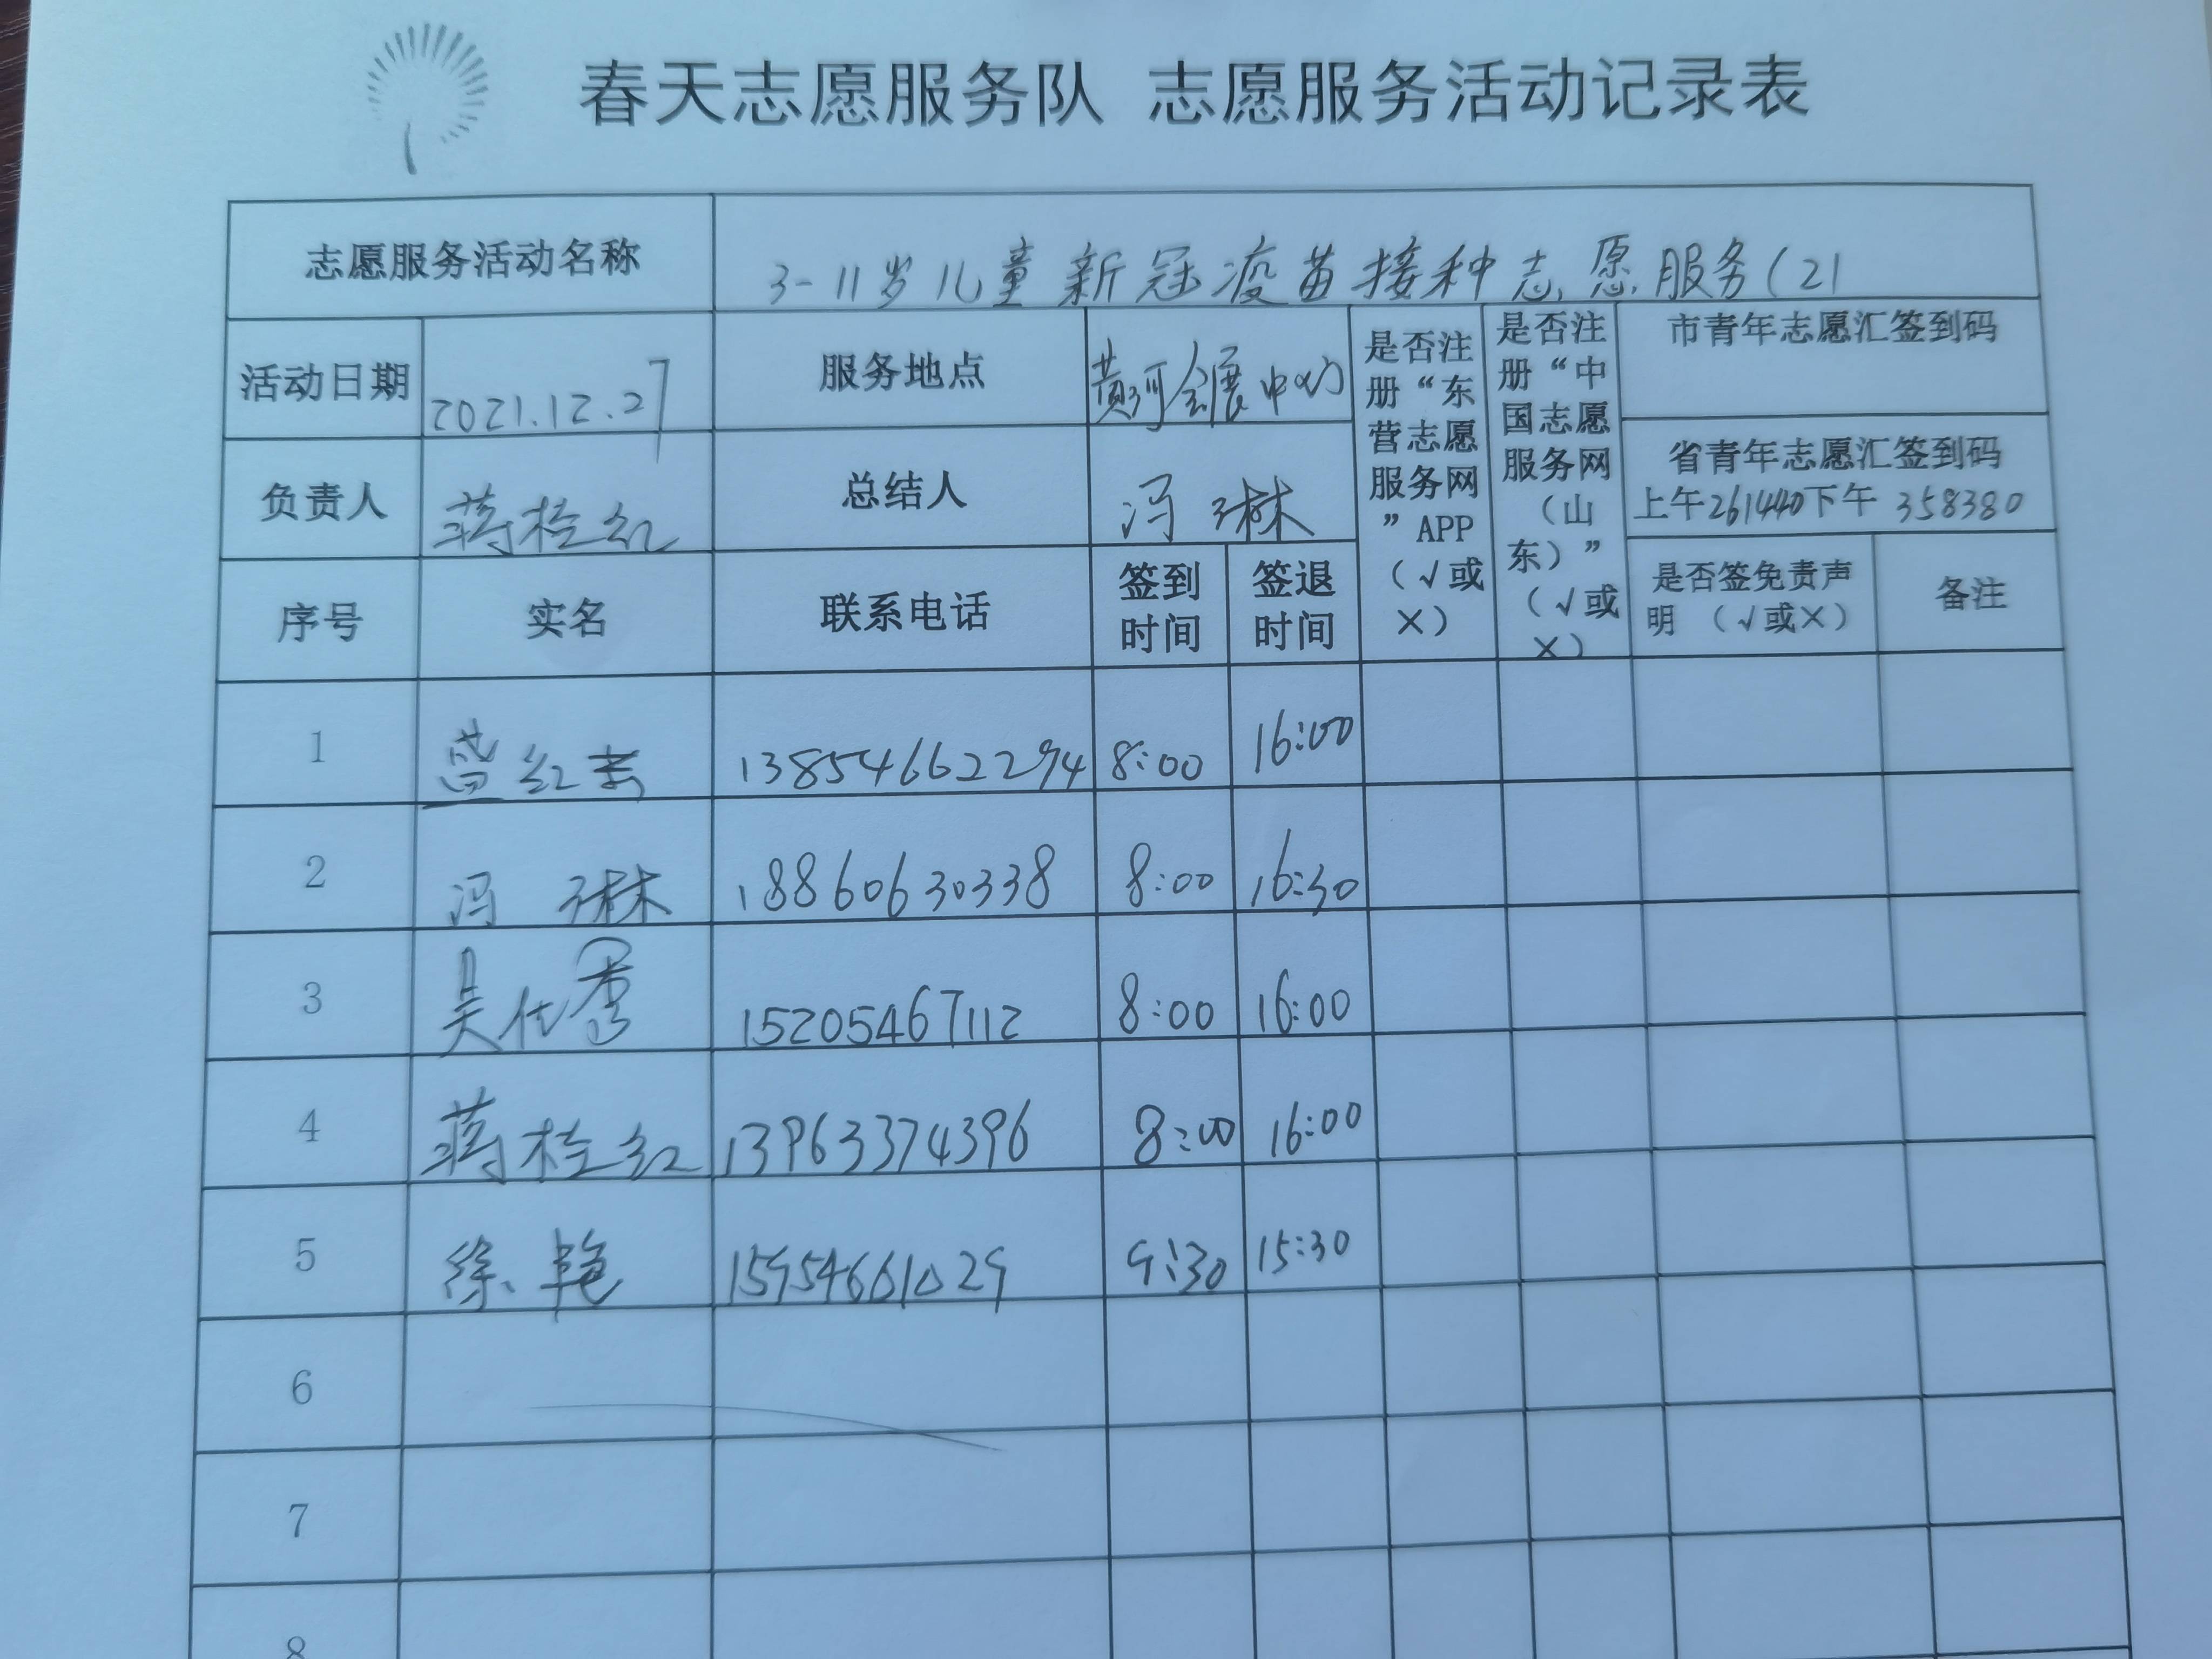 春天志愿服务队 志愿服务活动记录表
志愿服务活动名称 3-11岁儿童新冠疫苗接种志愿服务(21
活动日期 2021.12.27 服务地点 黄河会展中心
是否注册“东营志愿服务网”APP（√或×）
是否注册“中国志愿服务网（山东）”（√或×）
市青年志愿汇签到码
负责人 蒋桂红 总结人 冯琳
省青年志愿汇签到码
上午261440下午 358380
序号 实名 联系电话 签到时间 签退时间 是否签免责声明（√或×） 备注
1 红 13854662294 8:00 16:00
2 冯琳 18860630338 8:00 16:30
3 吴仕秀 15205467112 8:00 16:00
4 蒋桂红 13963374396 8:00 16:00
5 徐艳 15954661029 9:30 15:30
6
7
8